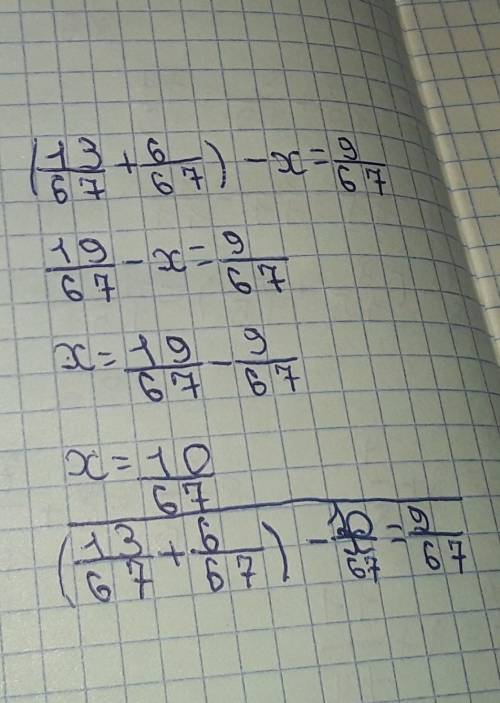 (13/67 + 6/67) - x = 9/67
19/67 - x = 9/67
x = 19/67 - 9/67
x = 10/67
(13/67 + 6/67) - 10/67 = 9/67